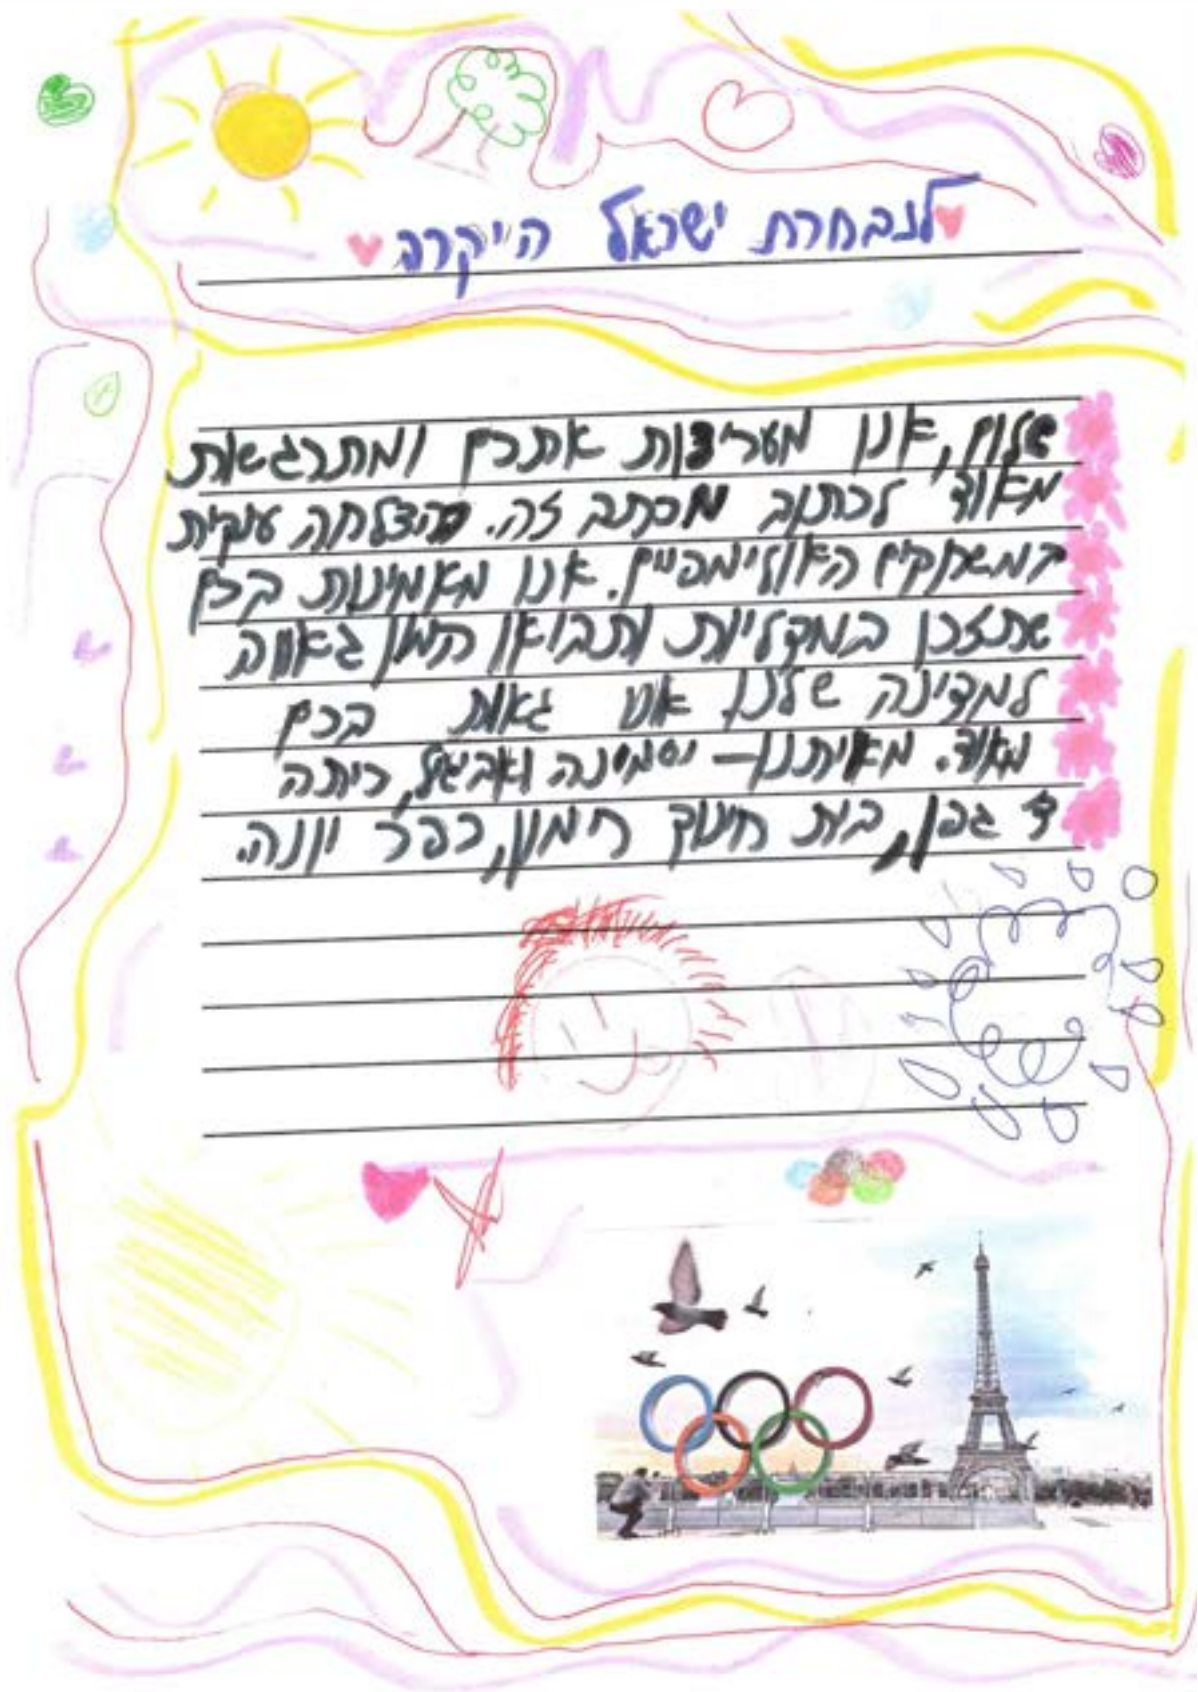 לנבחרת ישראל היקרה
שלום, אנו מעריצות אתכם ומתרגשות
מאוד לכתוב מכתב זה. בהצלחה ענקית
במשחקים האולימפיים. אנו מאמינות בכם
שתזכו במדליות ותביאו המון גאווה
למדינה שלנו. אנו גאות בכם
מאוד. מאיתנו – יסמינה ואביגיל, כיתה
ד' גפן, בית חינוך רימון, כפר יונה.